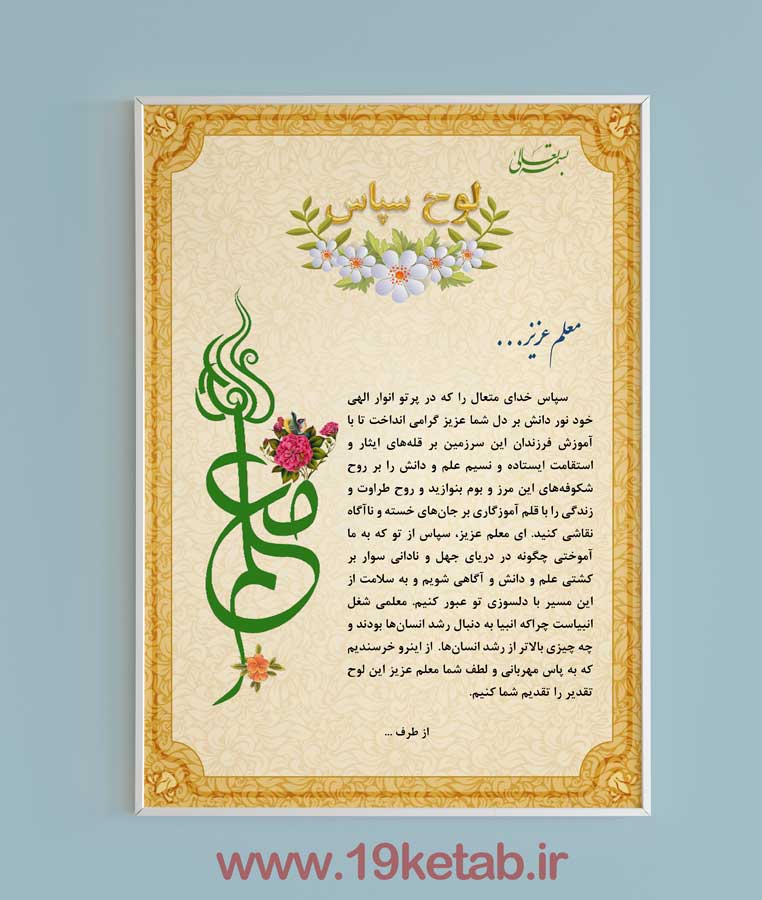 بسمه تعالی
لوح سپاس
معلم عزیز...
سپاس خدای متعال را که در پرتو انوار الهی
خود نور دانش بر دل شما عزیز گرامی انداخت تا با
آموزش فرزندان این سرزمین بر قله‌های ایثار و
استقامت ایستاده و نسیم علم و دانش را بر روح
شکوفه‌های این مرز و بوم بنوازید و روح طراوت و
زندگی را با قلم آموزگاری بر جان‌های خسته و ناآگاه
نقاشی کنید. ای معلم عزیز، سپاس از تو که به ما
آموختی چگونه در دریای جهل و نادانی سوار بر
کشتی علم و دانش و آگاهی شویم و به سلامت از
این مسیر با دلسوزی تو عبور کنیم. معلمی شغل
انبیاست چراکه انبیا به دنبال رشد انسان‌ها بودند و
چه چیزی بالاتر از رشد انسان‌ها. از اینرو خرسندیم
که به پاس مهربانی و لطف شما معلم عزیز این لوح
تقدیر را تقدیم شما کنیم.
از طرف ...
معلم
www.19ketab.ir